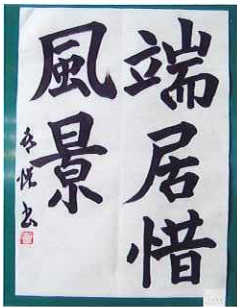 端居惜
風景